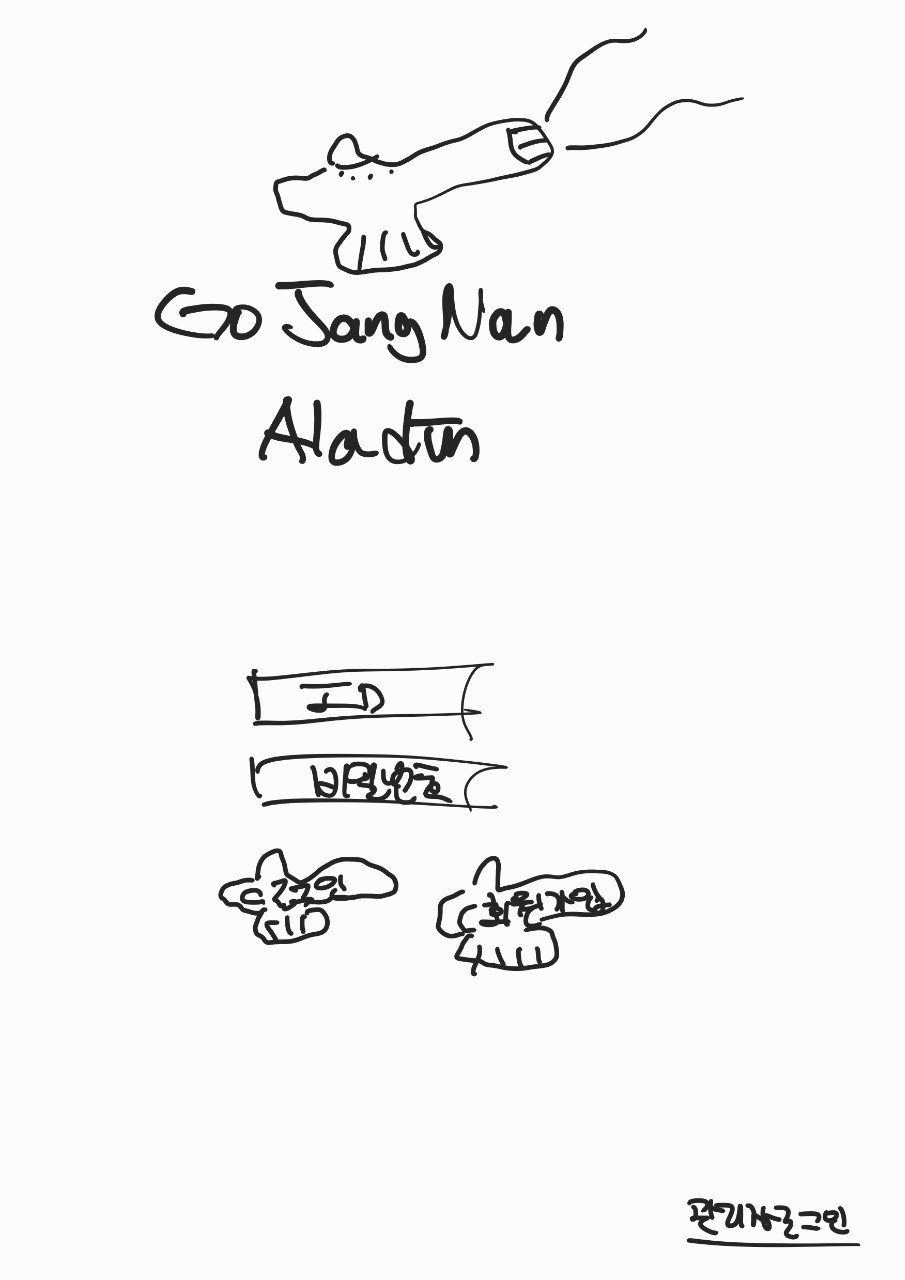 Go Jang Nan
Aladin
ID
비밀번호
로그인
회원가입
관리자로그인